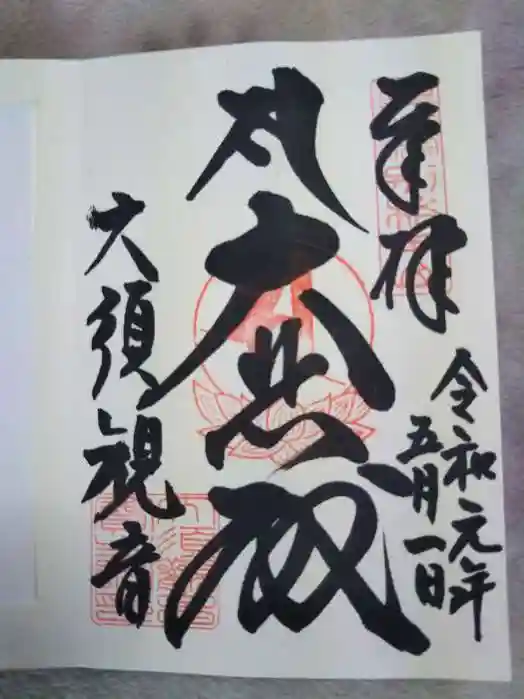 奉拝
令和元年
五月一日
大悲殿
大須観音